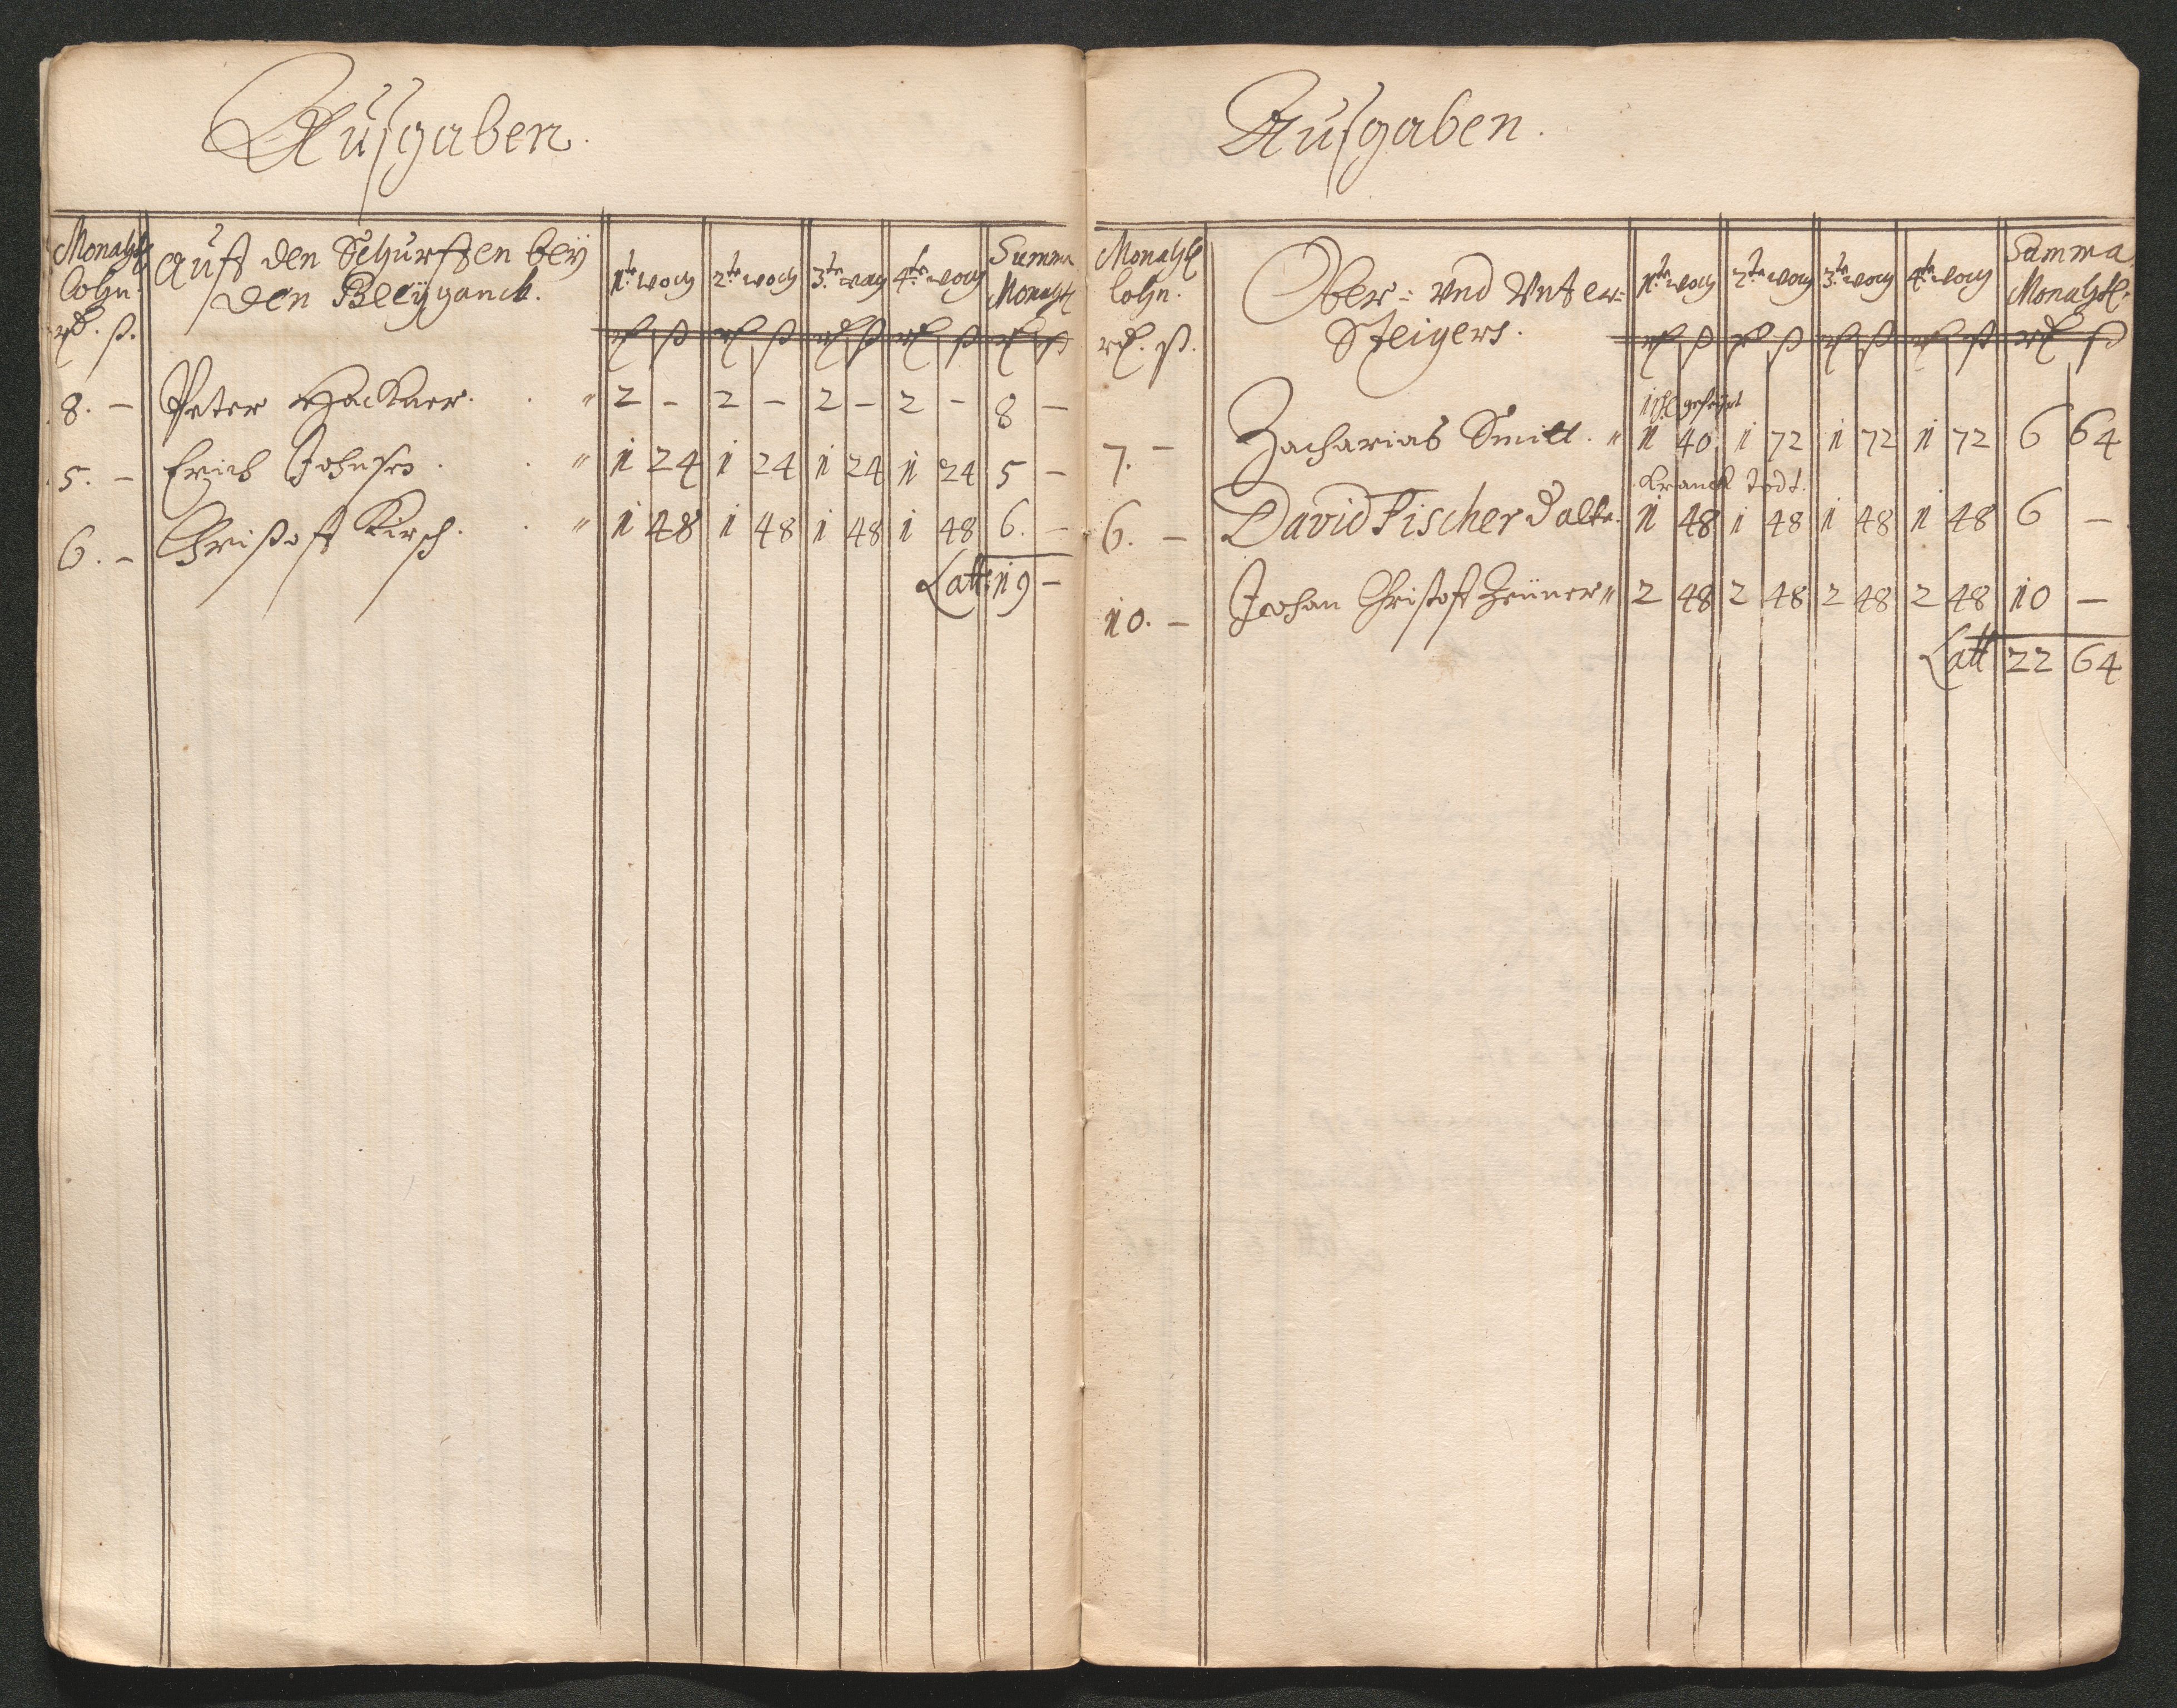 Ausgaben.
Monahtl lohn. Auft den Schurften beÿ den Bleÿganck. 1te woch 2te woch 3te woch 4te woch Summa Monahtl
rd. ß. rd ß rd ß rd ß rd ß rd ß
8. – Peter Hackner. " 2 – 2 – 2 – 2 – 8 –
5. – Erich Johnsen. " 1 24 1 24 1 24 1 24 5 –
6. – Christoff Kirsch. " 1 48 1 48 1 48 1 48 6. –
Latt: 19 –
Ausgaben.
Monahtl lohn. Ober= und Unter= Steigers. 1te woch 2te woch 3te woch 4te woch Summa Monahtl:
rd. ß. rd ß rd ß rd ß rd ß rd ß
1 sch gefeyrt
7. – Zacharias Smitt. " 1 40 1 72 1 72 1 72 6 64
Kranck todt.
6. – David Fischer d alte. 1 48 1 48 1 48 1 48 6 –
10. – Johan Christoff Zeüner " 2 48 2 48 2 48 2 48 10 –
Latt 22 64